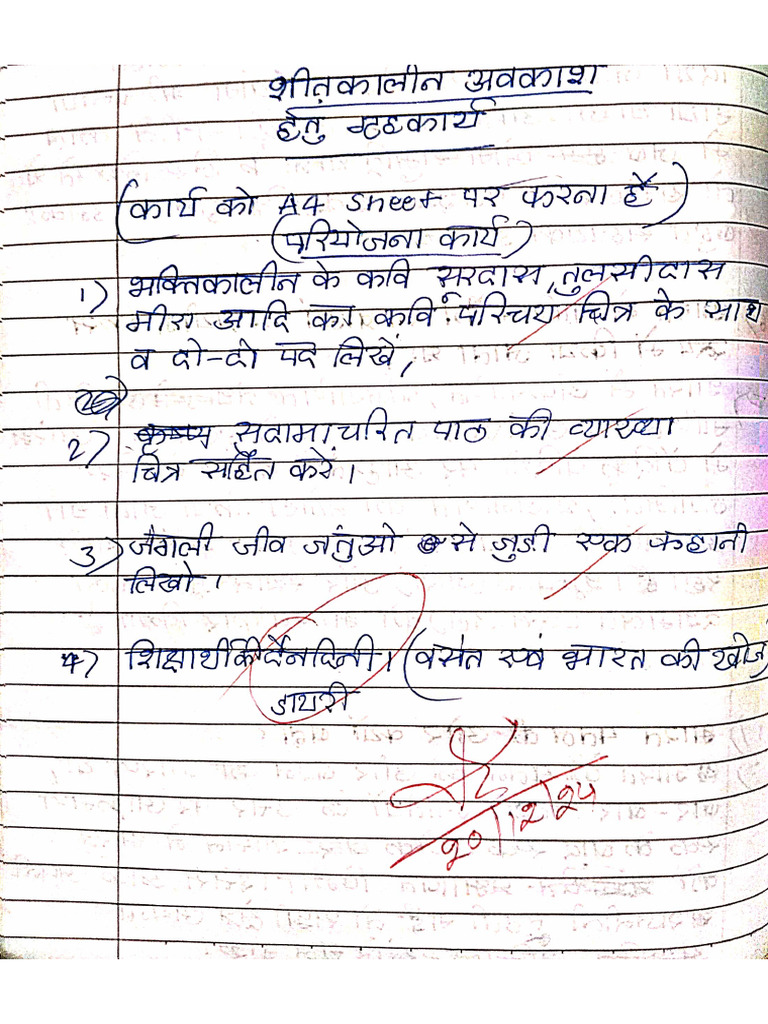 शीतकालीन अवकाश
हेतु गृहकार्य
(कार्य को A4 Sheet पर करना है)
(परियोजना कार्य)
1) भक्तिकालीन के कवि सूरदास, तुलसीदास
मीरा आदि का कवि परिचय चित्र के साथ
व दो-दो पद लिखें,
2) सुदामाचरित पाठ की व्याख्या
चित्र सहित करें।
3) जंगली जीव जंतुओ से जुडी एक कहानी
लिखो।
4) शिक्षार्थी की दैनंदिनी। (वसंत एवं भारत की खोज)
डायरी
20/12/24